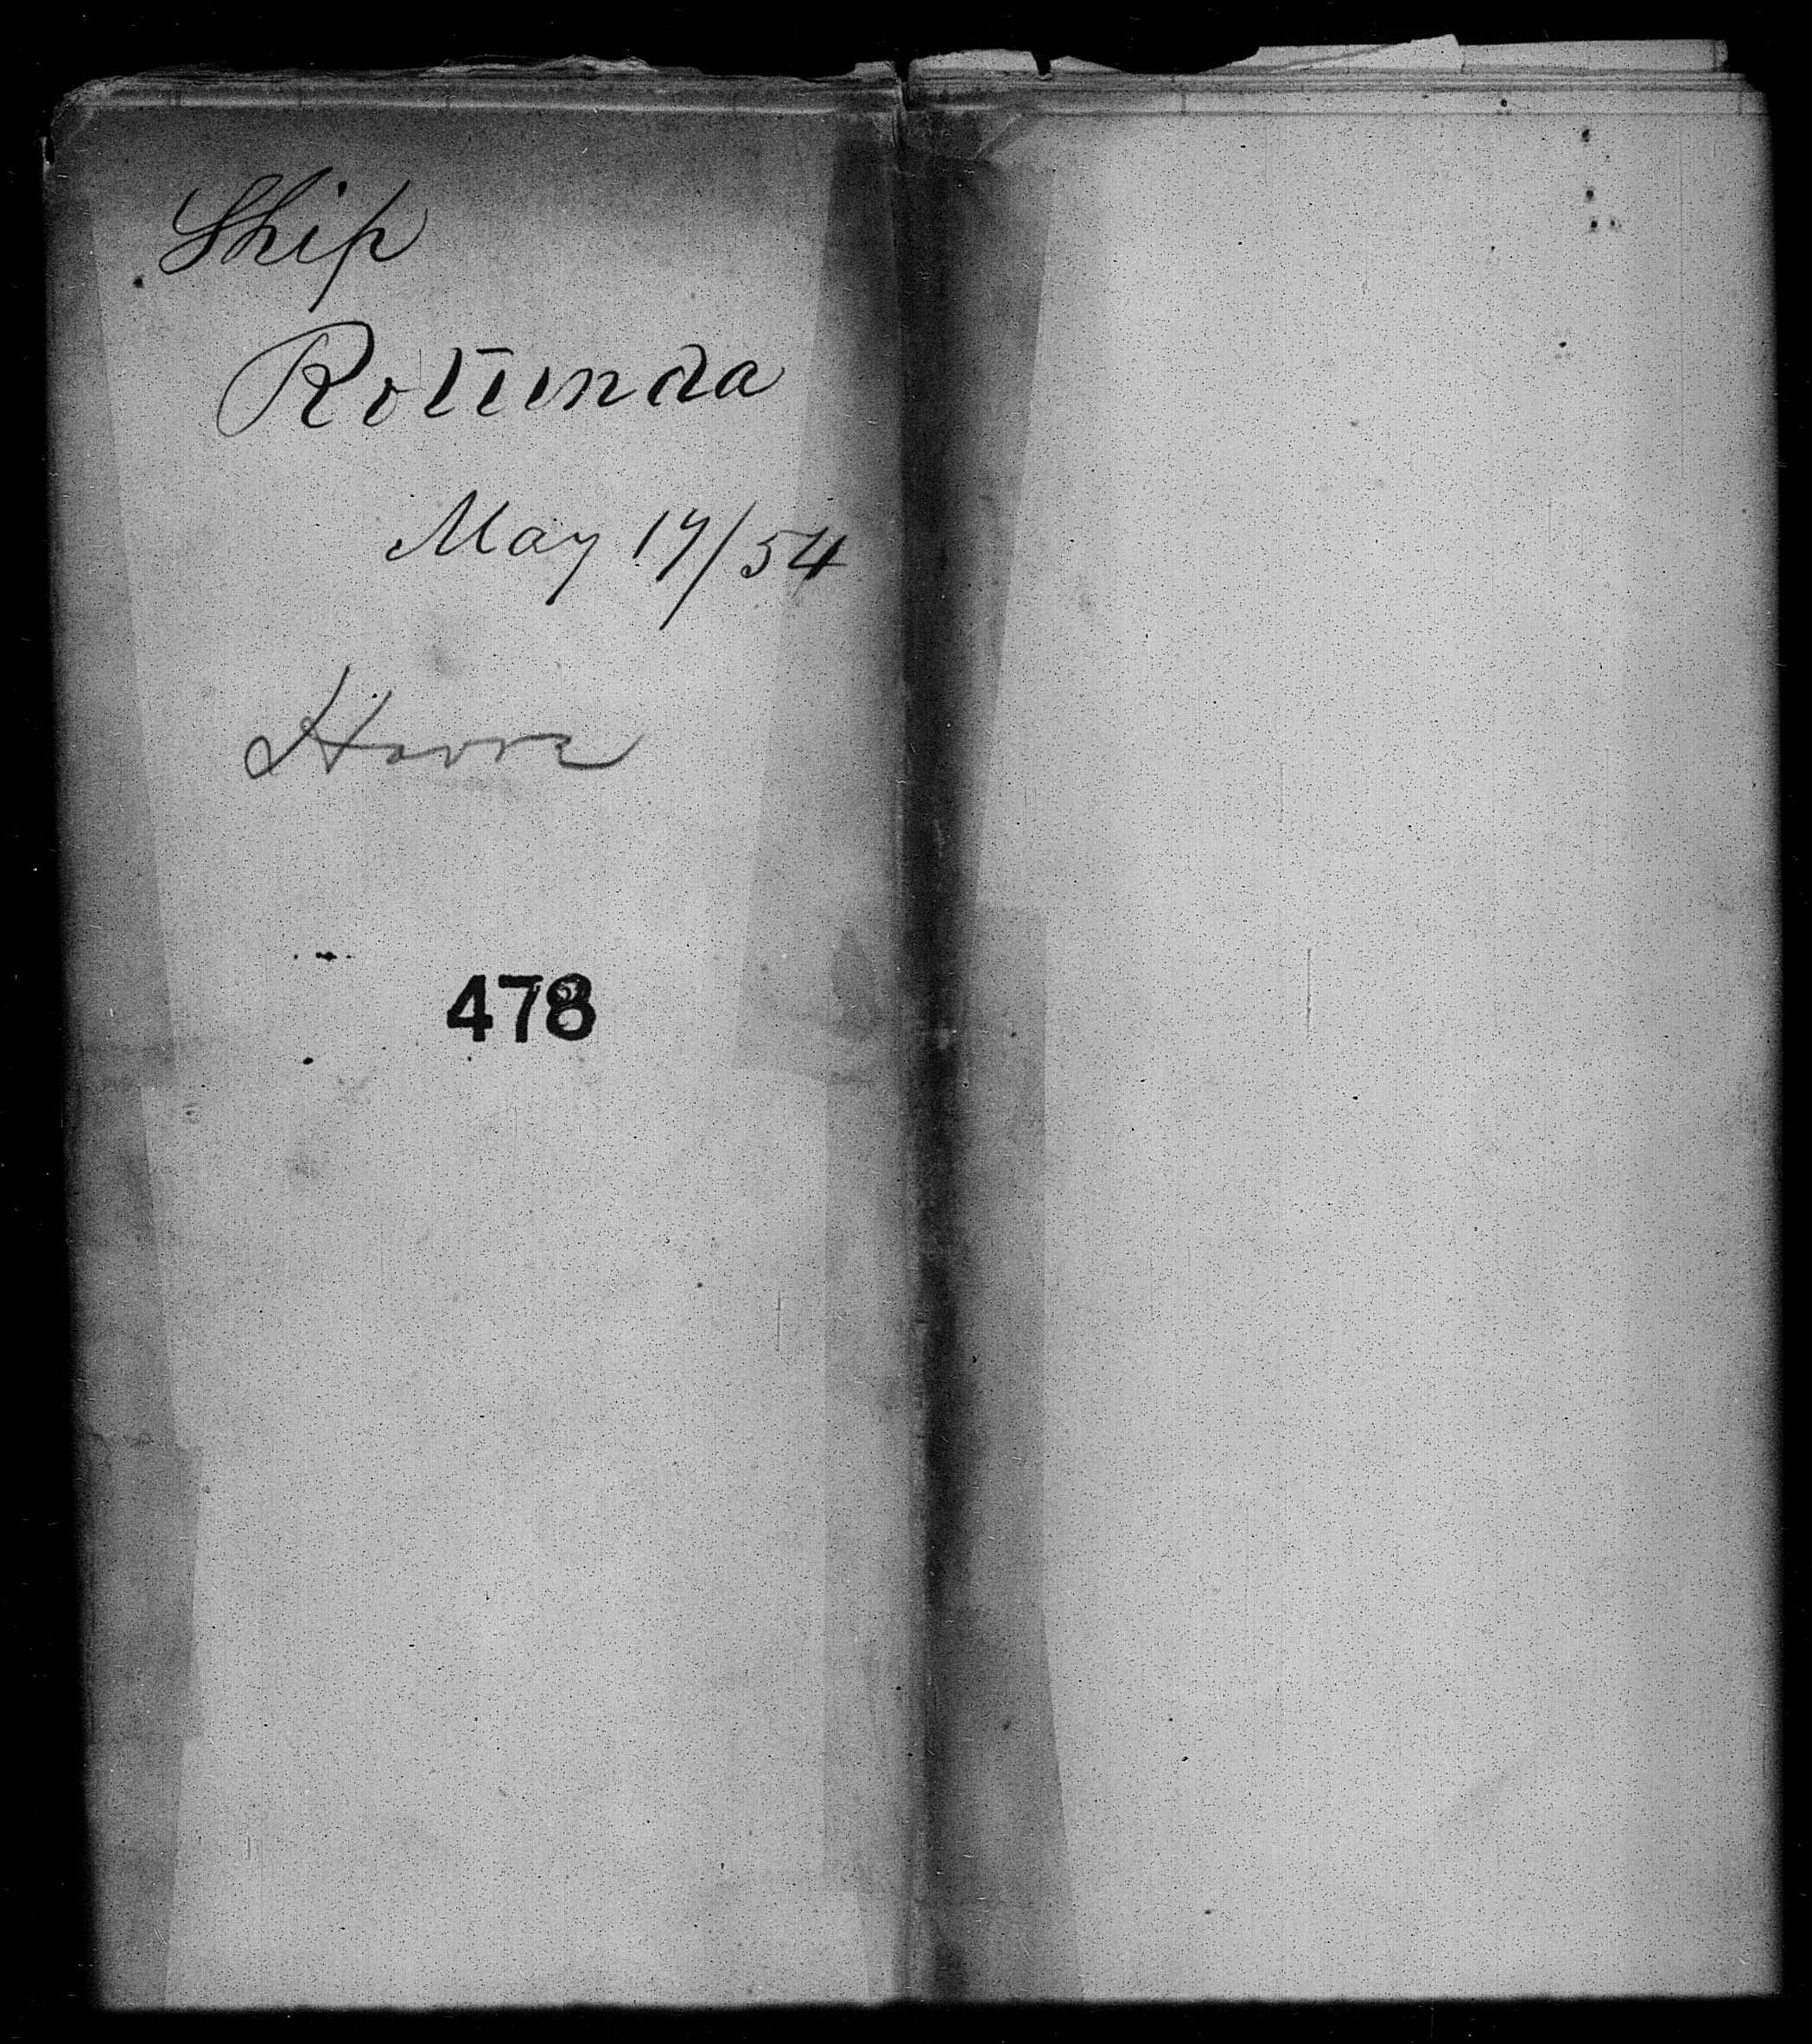 Ship
Rotunda
May 17/54
Havre
478